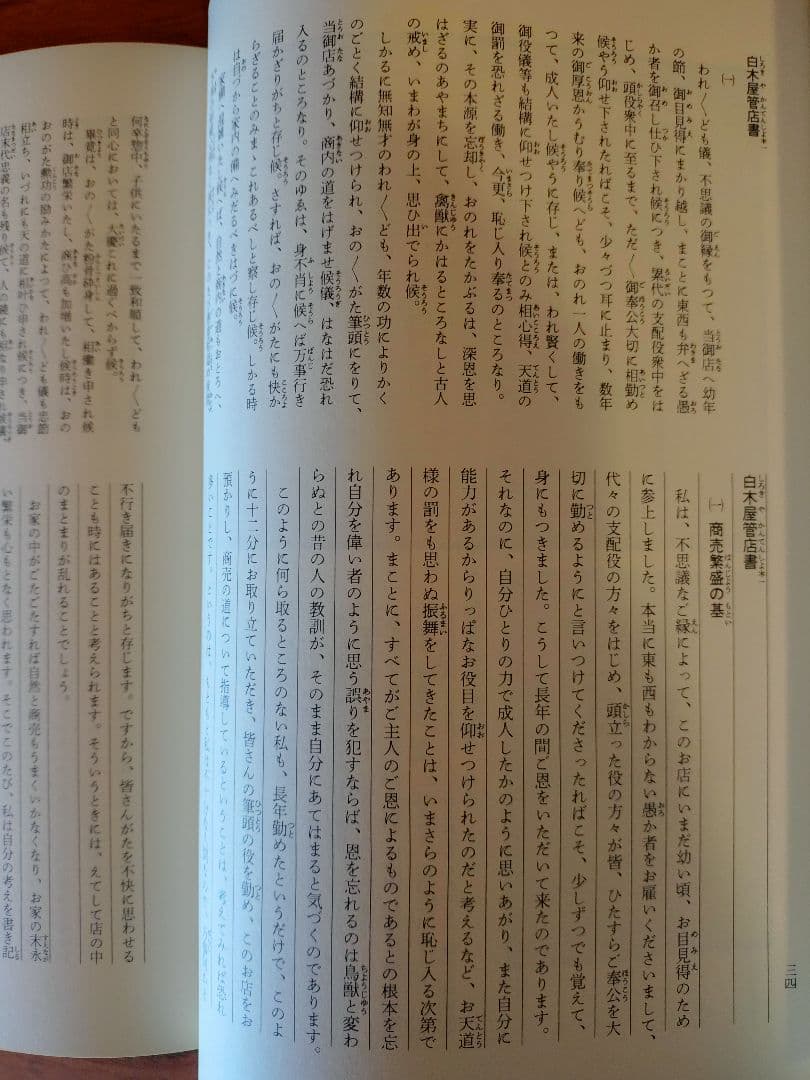 三四
白木屋管店書
㈠
われ〳〵ども儀、不思議の御縁をもつて、当御店へ幼年
の節、御目見得にまかり越し、まことに東西も弁へざる愚
か者を御召し仕ひ下され候につき、累代の支配役衆中をは
じめ、頭役衆中に至るまで、ただ〳〵御奉公大切に相勤め
候やう仰せ下されたればこそ、少々づつ耳に止まり、数年
来の御厚恩かうむり奉り候へども、おのれ一人の働きをも
つて、成人いたし候やうに存じ、または、われ賢くして、
御役儀等も結構に仰せつけ下され候とのみ相心得、天道の
御罰を恐れざる働き、今更、恥じ入り奉るのところなり。
実に、その本源を忘却し、おのれをたかぶるは、深恩を思
はざるのあやまちにして、禽獣にかはるところなしと古人
の戒め、いまわが身の上、思ひ出でられ候。
しかるに無知無才のわれ〳〵ども、年数の功によりかく
のごとく結構に仰せつけられ、おの〳〵がた筆頭にをりて、
当御店あづかり、商内の道をはげませ候儀、はなはだ恐れ
入るのところなり。そのゆゑは、身不肖に候へば万事行き
届かざりがちと存じ候。さすれば、おの〳〵がたにも快か
らざることのみまゝこれあるべしと察し存じ候。しかる時
は自づから家内の備へみだるべきはづに候。
白木屋管店書
㈠ 商売繁盛の基
私は、不思議なご縁によって、このお店にいまだ幼い頃、お目見得のため
に参上しました。本当に東も西もわからない愚か者をお雇いくださいまして、
代々の支配役の方々をはじめ、頭立った役の方々が皆、ひたすらご奉公を大
切に勤めるようにと言いつけてくださったればこそ、少しずつでも覚えて、
身にもつきました。こうして長年の間ご恩をいただいて来たのであります。
それなのに、自分ひとりの力で成人したかのように思いあがり、また自分に
能力があるからりっぱなお役目を仰せつけられたのだと考えるなど、お天道
様の罰をも思わぬ振舞をしてきたことは、いまさらのように恥じ入る次第で
あります。まことに、すべてがご主人のご恩によるものであるとの根本を忘
れ自分を偉い者のように思う誤りを犯すならば、恩を忘れるのは鳥獣と変わ
らぬとの昔の人の教訓が、そのまま自分にあてはまると気づくのであります。
このように何ら取るところのない私も、長年勤めたというだけで、このよ
うに十二分にお取り立ていただき、皆さんの筆頭の役を勤め、このお店をお
預かりし、商売の道について指導しているということは、考えてみれば恐れ
何卒惣中、子供にいたるまで一致和順して、われ〳〵ども
と同心においては、大慶これに過ぐべからず候。
畢竟は、おの〳〵がた粉骨砕身して、相働き申され候
時は、御店繁栄いたし、商ひ高も加増いたし候時は、おの
おのがた勲功の励みかたによつて、われ〳〵ども儀も忠節
相立ち、いづれにも天の道に相叶ひ申され候につき、当御
不行き届きになりがちと存じます。ですから、皆さんがたを不快に思わせる
ことも時にはあることと考えられます。そういうときには、えてして店の中
のまとまりが乱れることでしょう。
お家の中がごたごたすれば自然と商売もうまくいかなくなり、お家の末永
い繁栄も心もとなく思われます。そこでこのたび、私は自分の考えを書き記